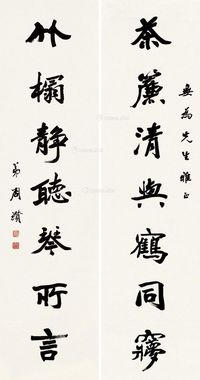 茶簾清與鶴同夢
無為先生雅正
竹榻靜聽琴所言
弟周